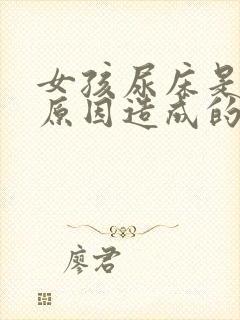 女孩尿床是
原因造成的
廖君